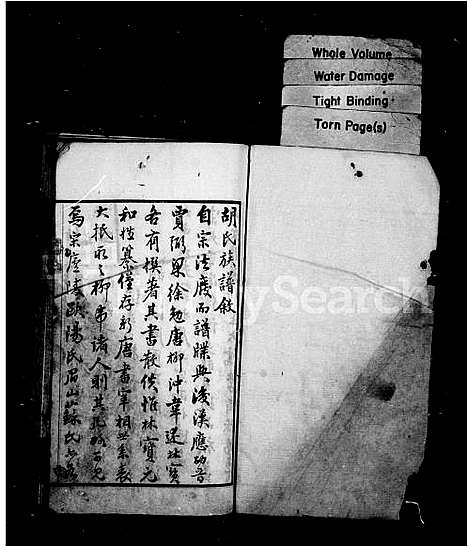 Whole Volume
Water Damage
Tight Binding
Torn Page(s)
胡氏族譜敘
自宗法廢而譜牒興後漢應劭晉
賈弼梁徐勉唐柳沖韋述林寶
各有撰著其書散佚惟林寶元
和姓纂僅存新唐書宰相世系表
大抵取之柳韋諸人
為宗廬陵歐陽氏眉山蘇氏
Search